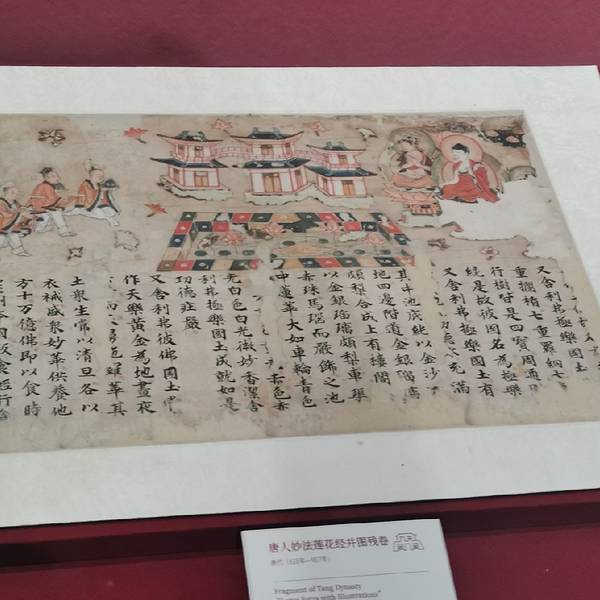 又舍利弗極樂國土
重欄楯七重羅網七
行樹皆是四寶周通
繞是故彼國名為極樂
又舍利弗極樂國土有
充滿
其中池底純以金沙
地四邊階道金銀瑠璃
頗梨合成上有樓閣
以金銀瑠璃頗梨車磲
赤珠馬瑙而嚴飾之池
中蓮華大如車輪青色
赤色赤
光白色白光微妙香潔舍
利弗極樂國土成就如是
功德莊嚴
又舍利弗彼佛國土常
作天樂黃金為地晝夜
而 華其
土衆生常以清旦各以
衣裓盛衆妙華供養他
方十万億佛即以食時
本國飯食經行舍
唐人妙法莲花经并图残卷
唐代（618年—907年）
Fragment of Tang Dynasty
"Lotus Sutra with Illustrations"